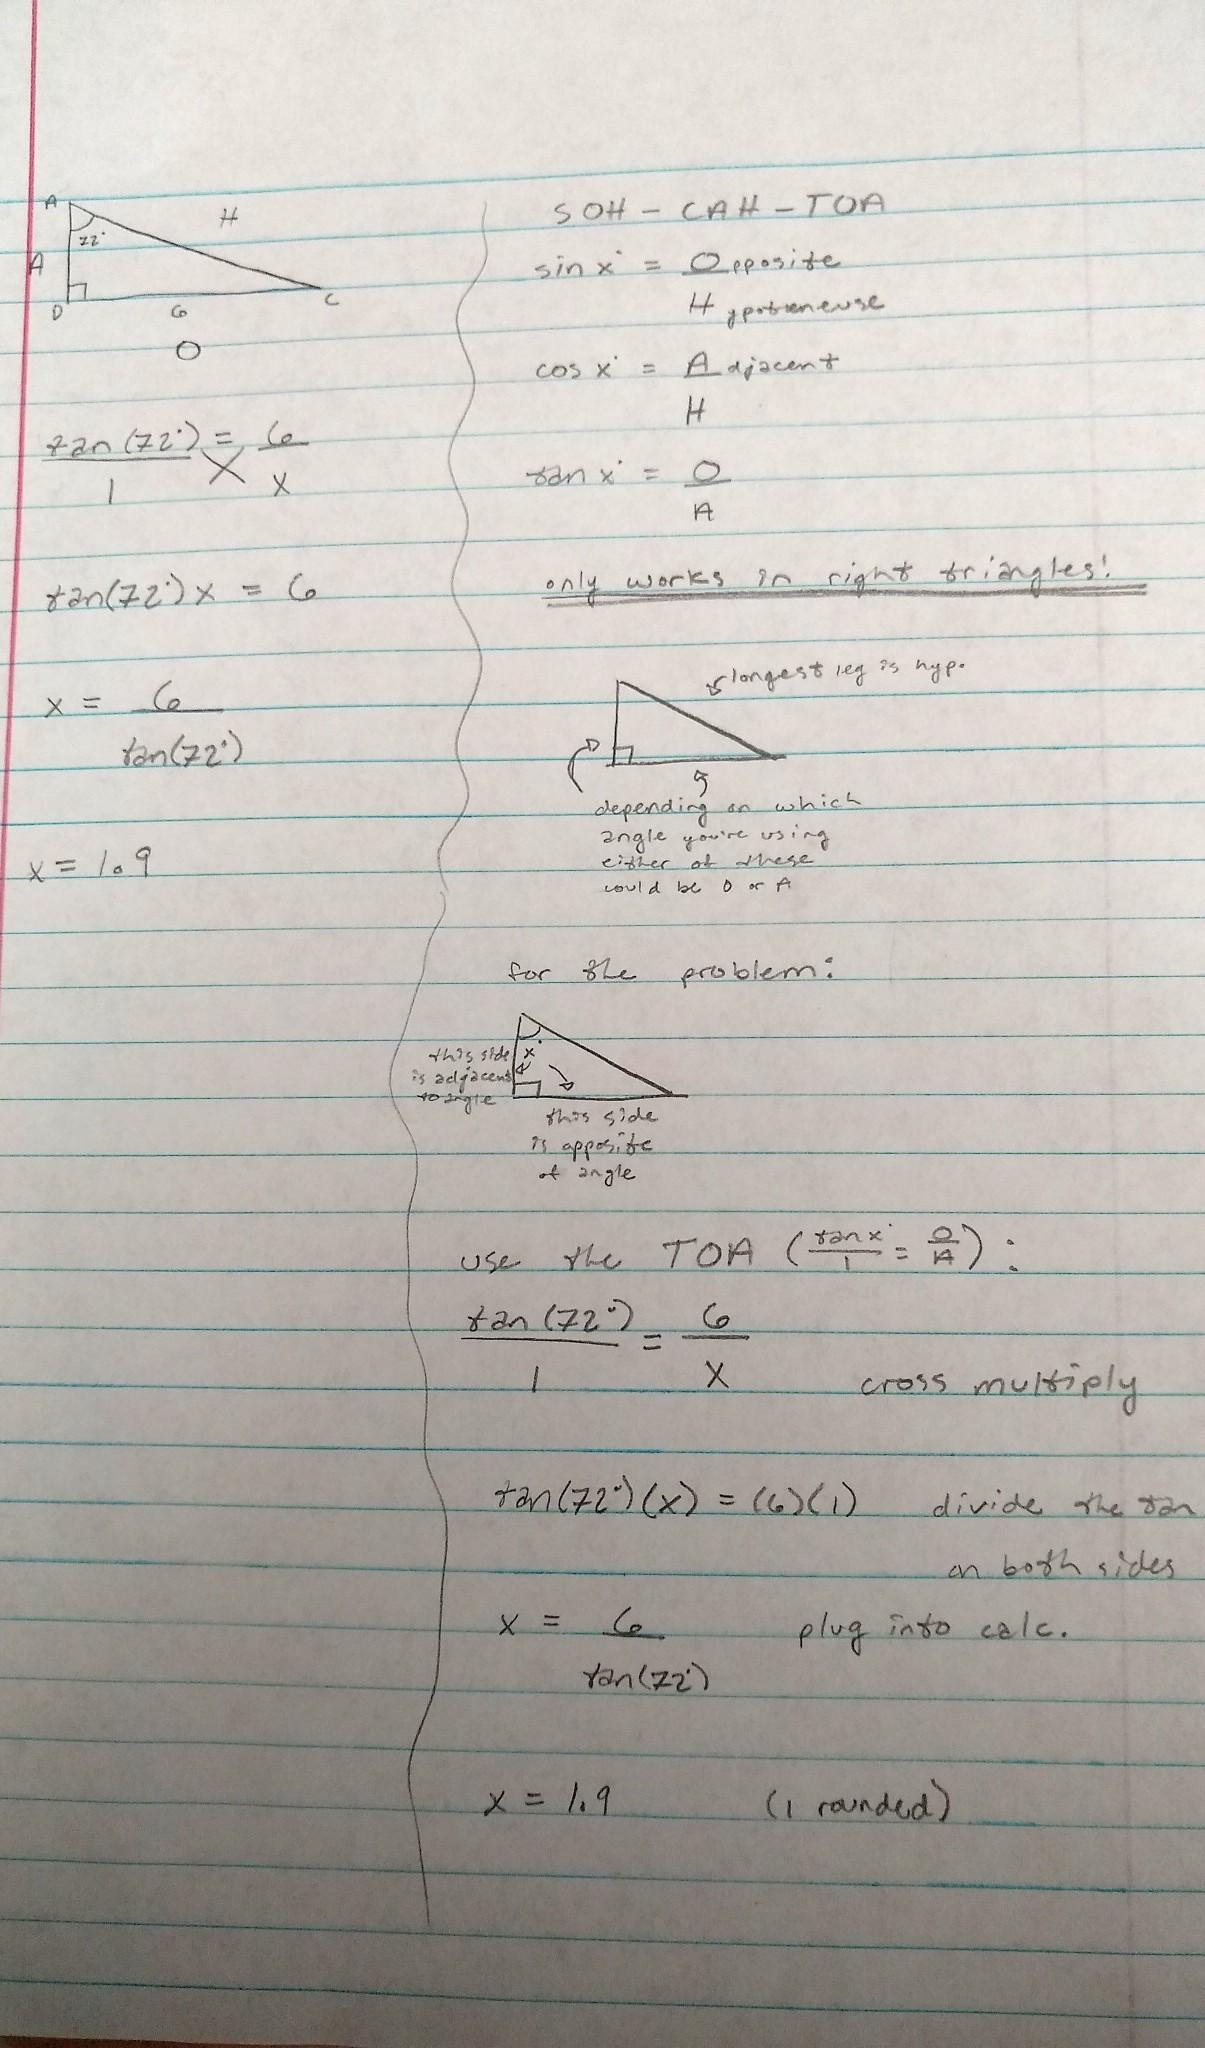 A
H
72°
A
D
6
C
O
tan(72°) = 6
1 x
tan(72°)x = 6
x = 6
tan(72°)
x = 1.9
SOH - CAH - TOA
sin x° = Opposite
Hypotneneuse
cos x° = Adjacent
H
tan x° = O
A
only works in right triangles!
longest leg is hyp.
depending on which
angle you're using
either of these
could be O or A
for the problem:
x°
this side
is adjacent
to angle
this side
is opposite
of angle
use the TOA (tan x°/1 = O/A):
tan(72°) = 6
1 x
cross multiply
tan(72°)(x) = (6)(1) divide the tan
on both sides
x = 6 plug into calc.
tan(72°)
x = 1.9 (1 rounded)